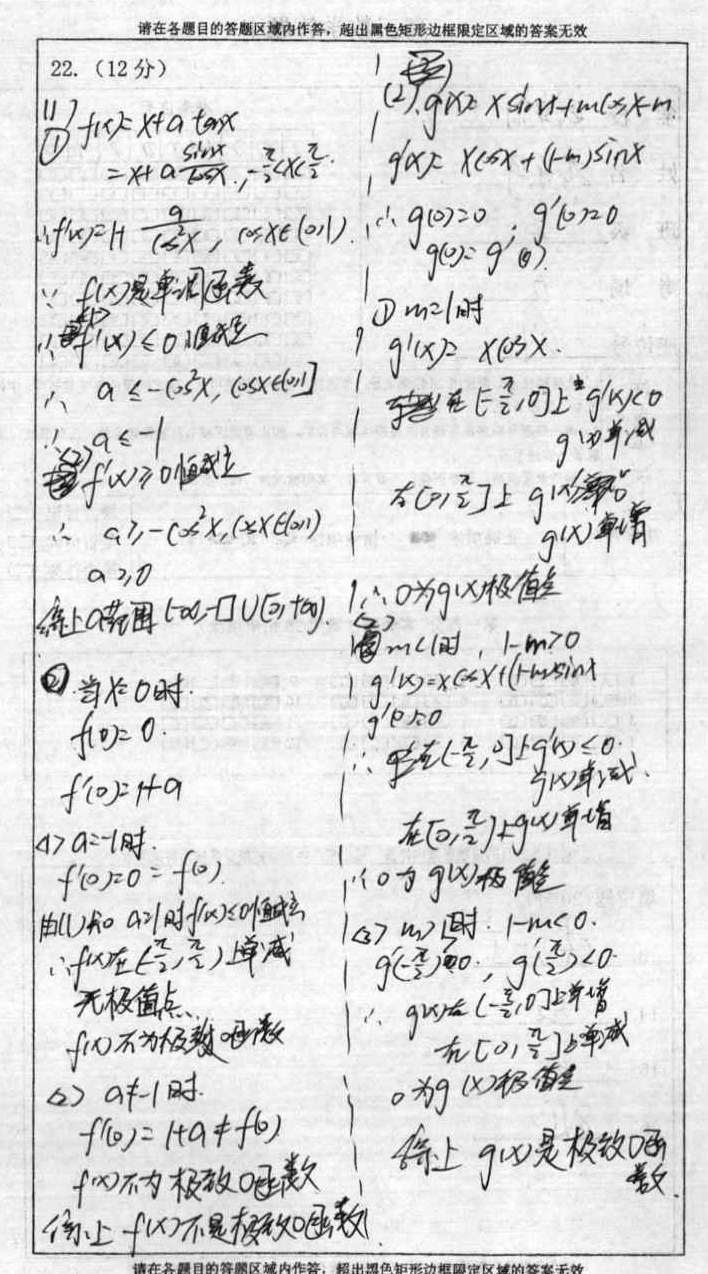 请在各题目的答题区域内作答，超出黑色矩形边框限定区域的答案无效
22.（12分）
(1)
① f(x)=x+a tanx
=x+a sinx/cosx, -π/2<x<π/2.
∴f'(x)=1+ a/cos²x, cosx∈(0,1).
∵ f(x)是单调函数
<1>
∴ f'(x)≤0恒成立
∴ a≤-cos²x, cosx∈(0,1]
∴ a≤-1
<2> f'(x)≥0恒成立
∴ a≥-cos²x, cosx∈(0,1)
a≥0
综上a范围(-∞,-1]∪[0,+∞)
② 当x=0时.
f(0)=0.
f'(0)=1+a
<1> a=-1时.
f'(0)=0=f(0).
由(1)知 a=-1时f'(x)≤0恒成立
∴f(x)在(-π/2,π/2)上单减
无极值点、
f(x)不为极致0函数
<2> a≠-1时.
f'(0)=1+a≠f(0)
f(x)不为极致0函数
综上 f(x)不是极致0函数
(2). g(x)=xsinx+mcosx-m
g'(x)=xcosx+(1-m)sinx
∴ g(0)=0, g'(0)=0
g(0)=g'(0).
① m=1时
g'(x)=xcosx.
在[-π/2,0]上 g'(x)<0
g(x)单减
在[0,π/2]上 g'(x)
g(x)单增
∴ 0为g(x)极值点
<2> m<1时, 1-m>0
g'(x)=xcosx+(1-m)sinx
g'(0)=0
∴ 在(-π/2,0]上g'(x)≤0.
g(x)单减.
在[0,π/2)上g(x)单增
∴0为g(x)极值点
<3> m>1时. 1-m<0.
g'(-π/2)>0, g'(π/2)<0.
∴ g(x)在(-π/2,0]上单增
在[0,π/2]上单减
0为g(x)极值点
综上 g(x)是极致0函
数.
请在各题目的答题区域内作答，超出黑色矩形边框限定区域的答案无效